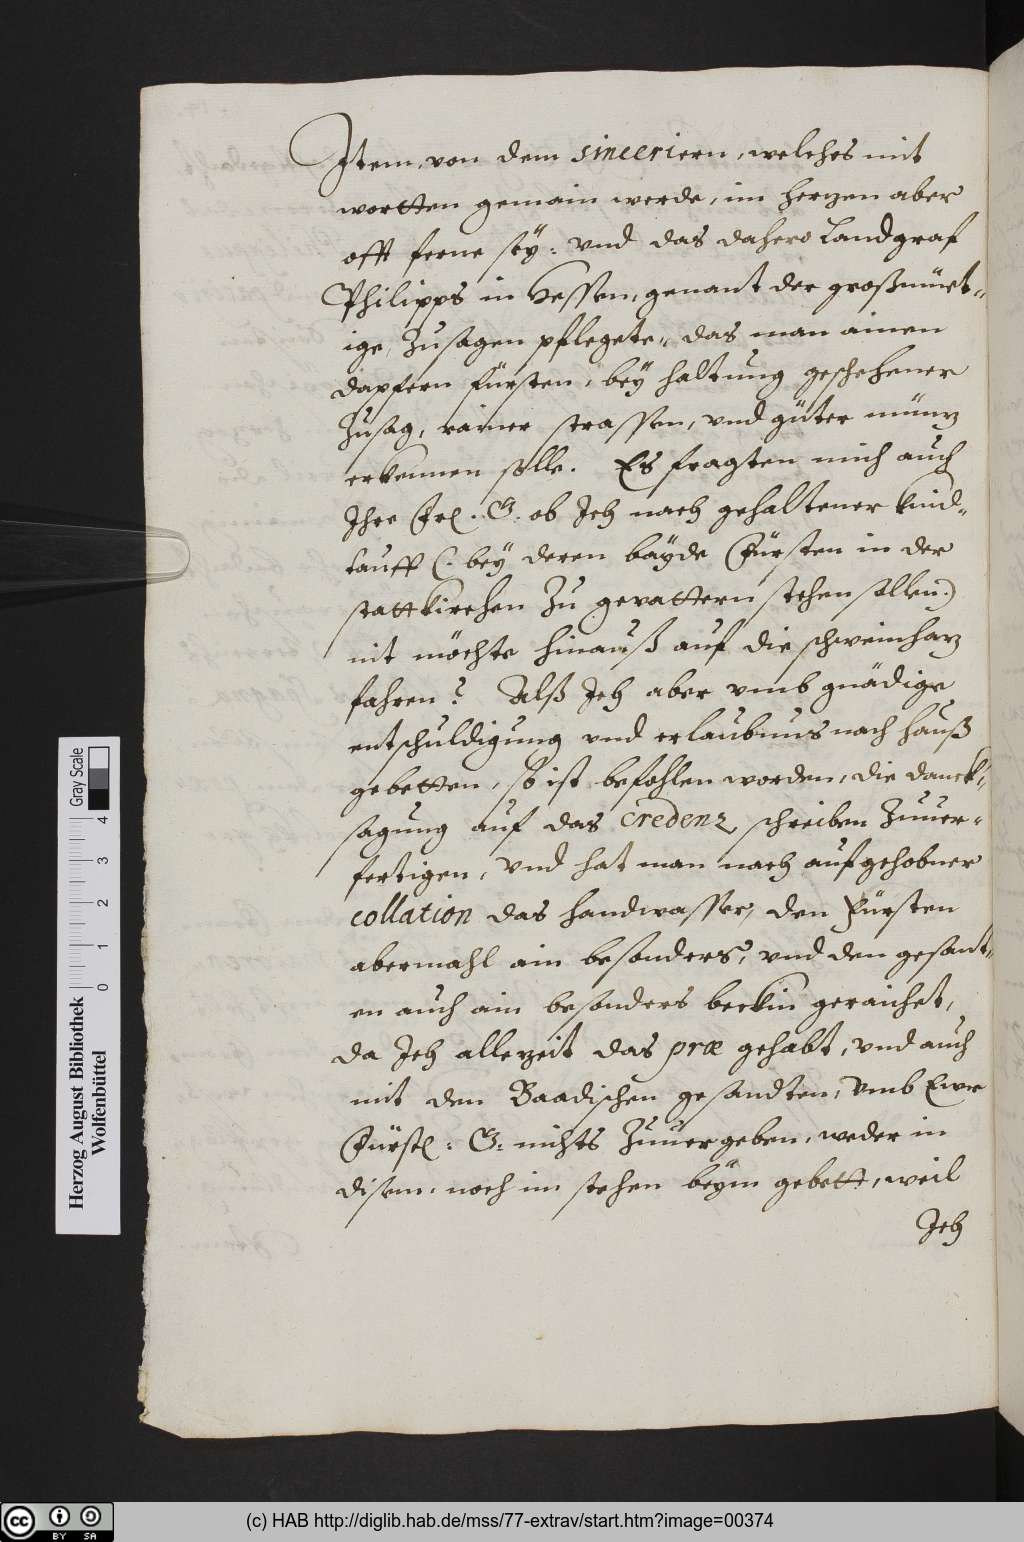 Item, von dem sinceriern, welches mit
wortten gemain werde, im hertzen aber
offt ferne seÿ: vnd das dahero Landgraf
Philipps in Hessen, genant der großmüet-
ige, Zusagen pflegete, das man ainen
dapfern fürsten, beÿ haltung geschehener
Zusag, rainer strassen, vnd güter müntz
erkennen solle. Es fragten mich auch
Ihre Frl. G. ob Ich nach gehaltener kind-
tauff (: beÿ deren baÿde Fürsten in der
stattkirchen Zu gevattern stehen sollen:)
nit möchte hinauß auf die schweinhatz
fahren? Alß Ich aber vmb gnädige
entschuldigung vnd erlaubnus nach hauß
gebetten, so ist befohlen worden, die danck-
sagung auf das credenz schreiben Zuuer-
fertigen, Vnd hat man nach aufgehobner
collation das handwasser, den Fürsten
abermahl ain besonders, vnd den gesant-
en auch ain besonders beckin geraichet,
da Ich allezeit das præ gehabt, vnd auch
mit den Baadischen gesandten, Vmb Ewr
Fürstl: G: nichts Zuuergeben, weder in
disem, noch im stehen beÿm gebett, weil
Ich
Herzog August Bibliothek
Wolfenbüttel
0 1 2 3 4
Gray Scale
cc BY SA
(c) HAB http://diglib.hab.de/mss/77-extrav/start.htm?image=00374